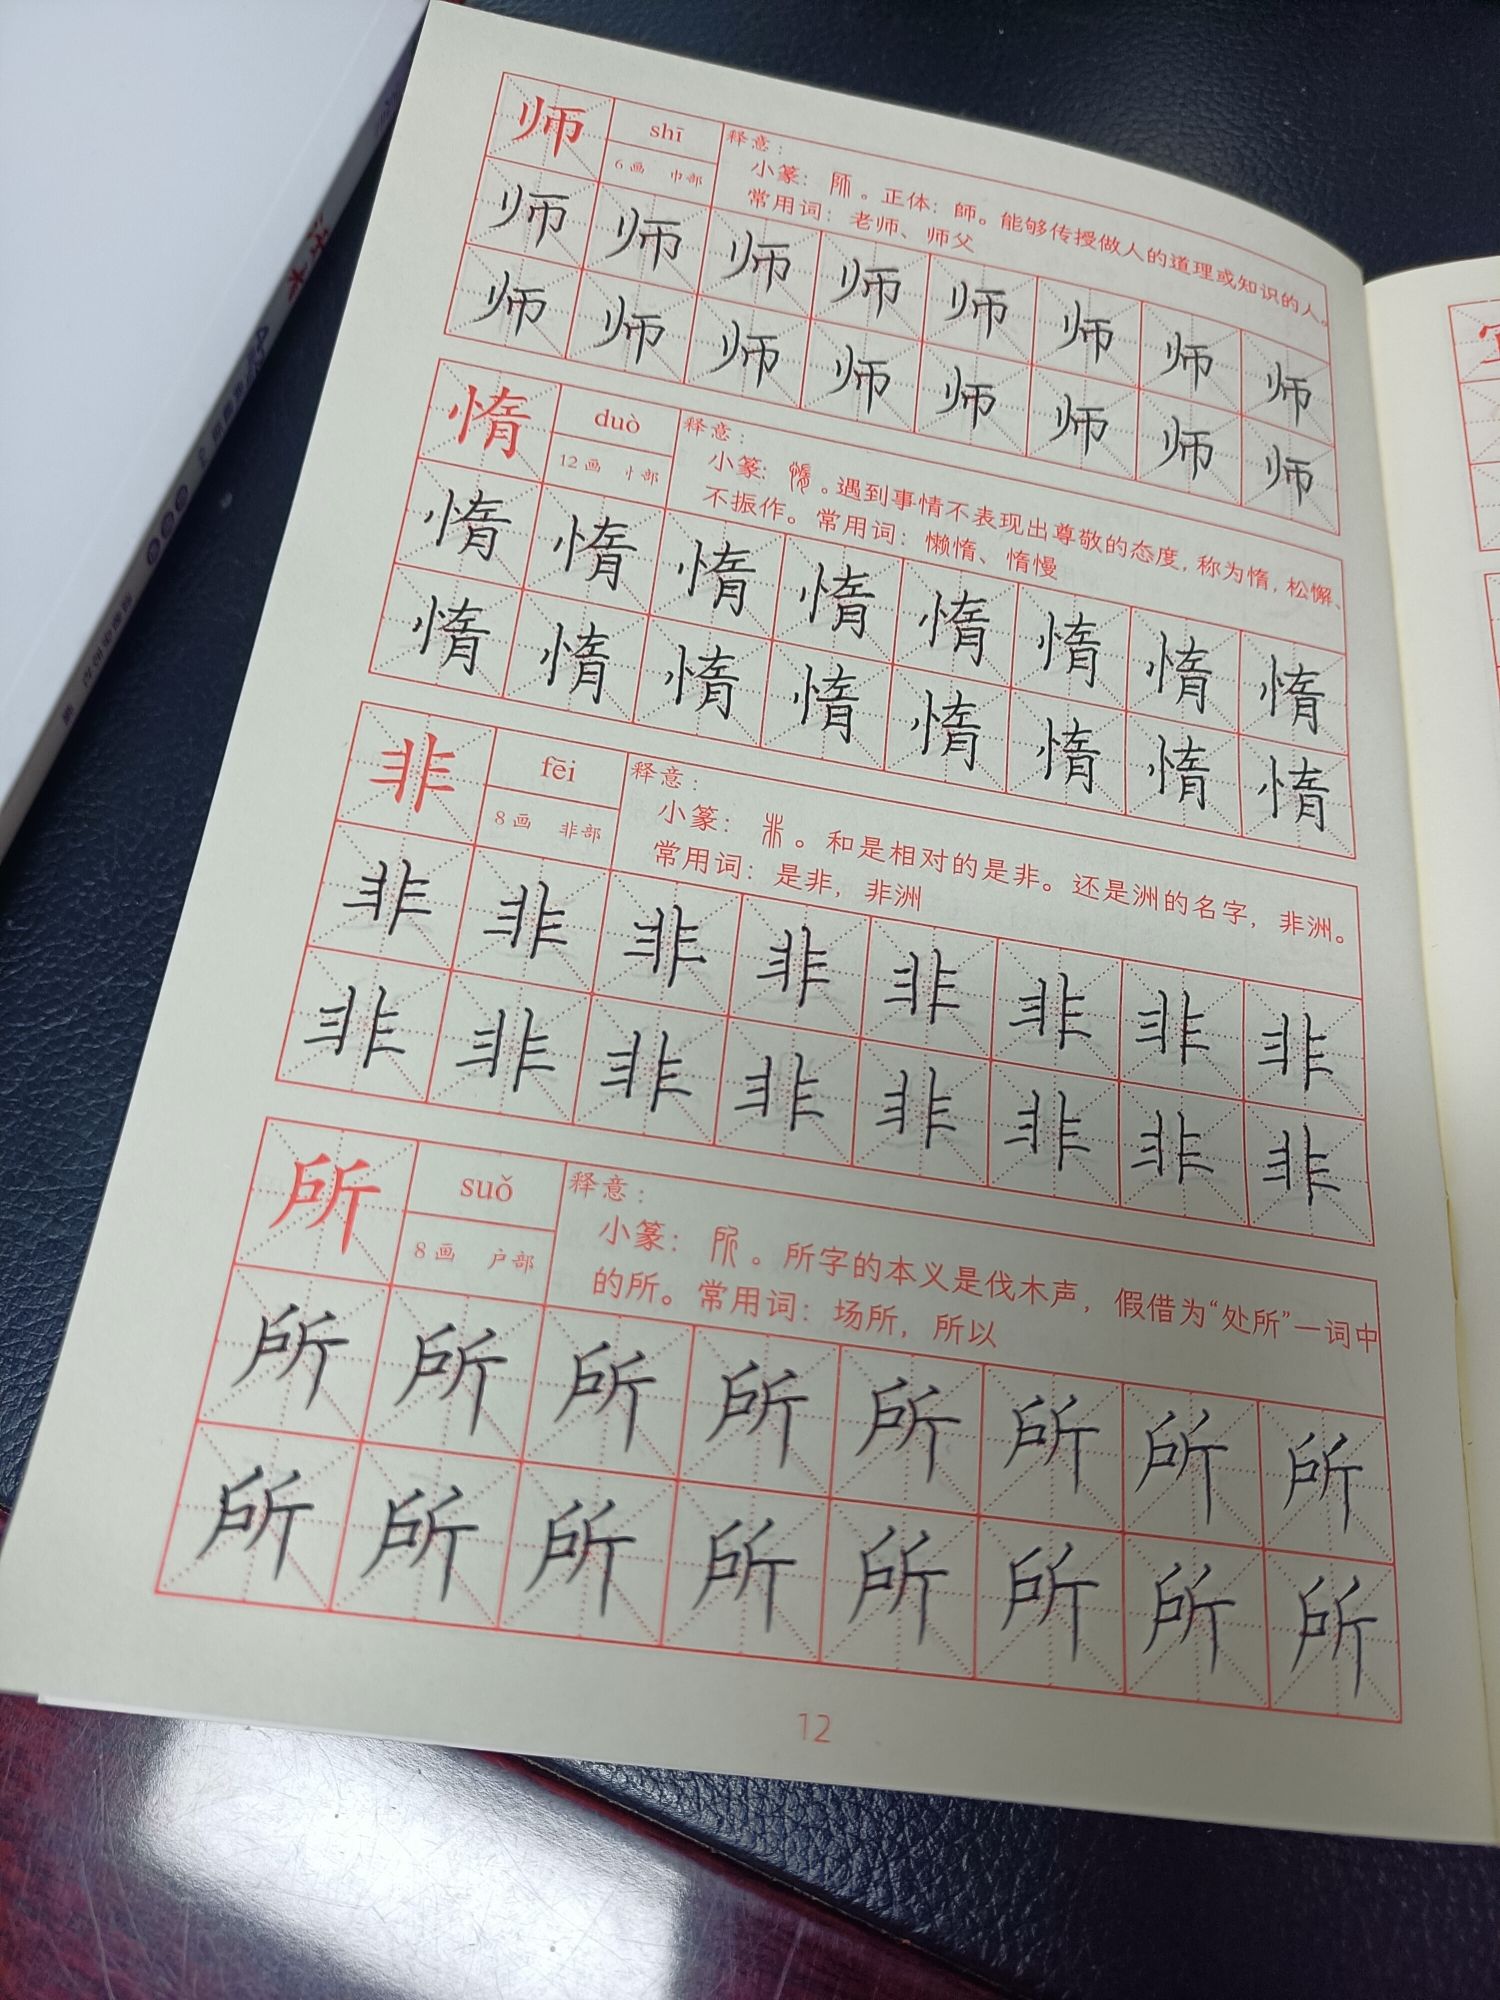 师
shī
6画 巾部
释意：
小篆：。正体：師。能够传授做人的道理或知识的人。
常用词：老师、师父
师 师 师 师 师 师 师 师
师 师 师 师 师 师 师 师
惰
duò
12画 忄部
释意：
小篆：。遇到事情不表现出尊敬的态度，称为惰，松懈、
不振作。常用词：懒惰、惰慢
惰 惰 惰 惰 惰 惰 惰 惰
惰 惰 惰 惰 惰 惰 惰 惰
非
fēi
8画 非部
释意：
小篆：。和是相对的是非。还是洲的名字，非洲。
常用词：是非，非洲
非 非 非 非 非 非 非 非
非 非 非 非 非 非 非 非
所
suǒ
8画 户部
释意：
小篆：。所字的本义是伐木声，假借为“处所”一词中
的所。常用词：场所，所以
所 所 所 所 所 所 所 所
所 所 所 所 所 所 所 所
12